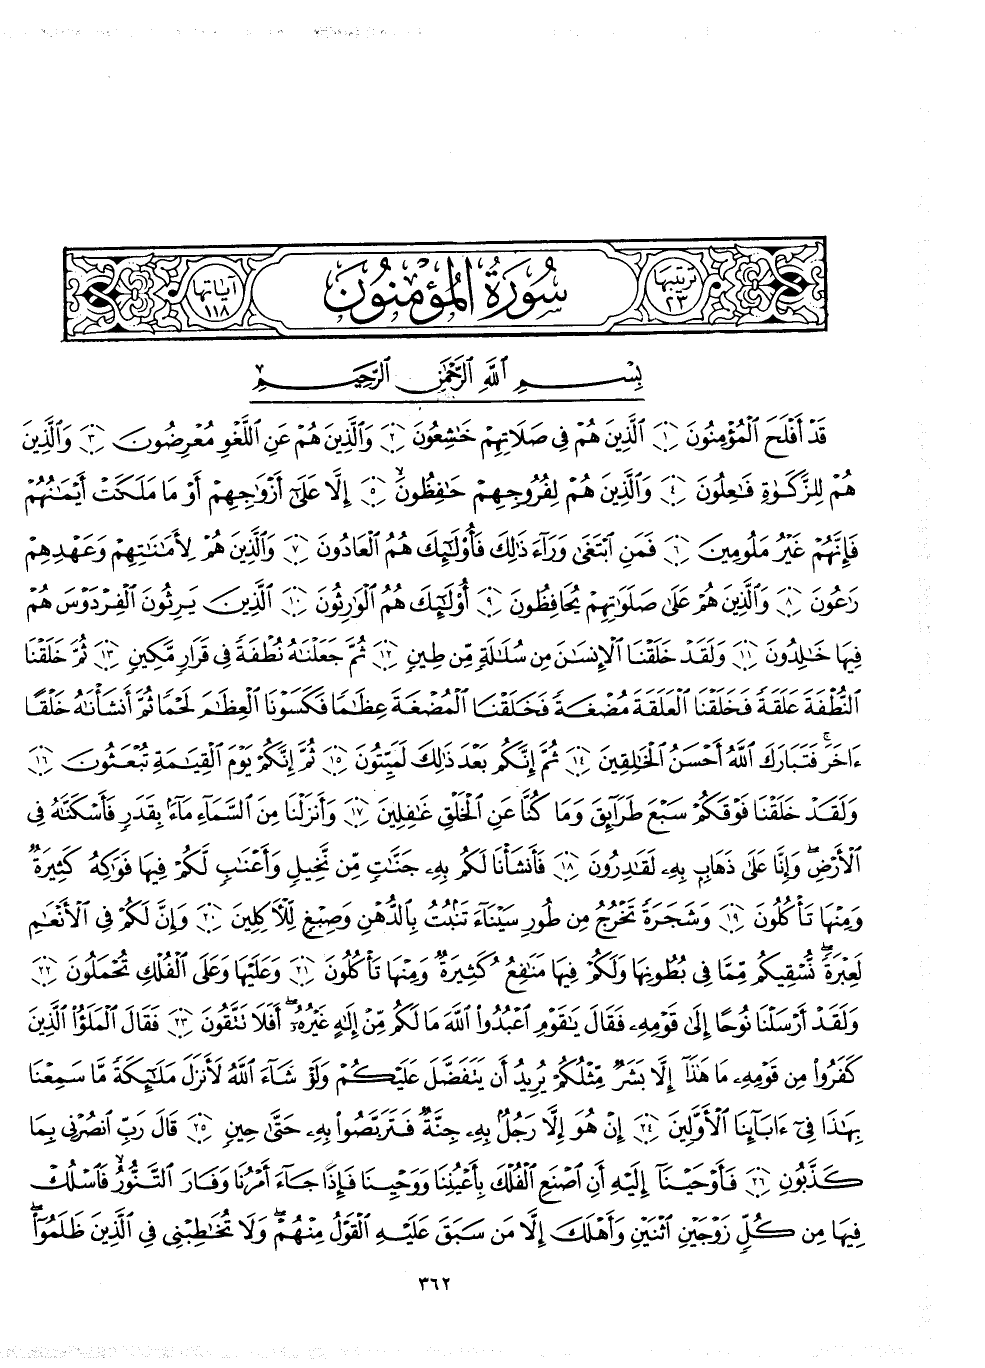 ترتيبها
٢٣
سُورَةُ الْمُؤْمِنُونَ
آيَاتُهَا
١١٨
بِسْمِ ٱللَّهِ ٱلرَّحْمَٰنِ ٱلرَّحِيمِ
قَدْ أَفْلَحَ ٱلْمُؤْمِنُونَ ١ ٱلَّذِينَ هُمْ فِى صَلَاتِهِمْ خَٰشِعُونَ ٢ وَٱلَّذِينَ هُمْ عَنِ ٱللَّغْوِ مُعْرِضُونَ ٣ وَٱلَّذِينَ
هُمْ لِلزَّكَوٰةِ فَٰعِلُونَ ٤ وَٱلَّذِينَ هُمْ لِفُرُوجِهِمْ حَٰفِظُونَ ٥ إِلَّا عَلَىٰٓ أَزْوَٰجِهِمْ أَوْ مَا مَلَكَتْ أَيْمَٰنُهُمْ
فَإِنَّهُمْ غَيْرُ مَلُومِينَ ٦ فَمَنِ ٱبْتَغَىٰ وَرَآءَ ذَٰلِكَ فَأُو۟لَٰٓئِكَ هُمُ ٱلْعَادُونَ ٧ وَٱلَّذِينَ هُمْ لِأَمَٰنَٰتِهِمْ وَعَهْدِهِمْ
رَٰعُونَ ٨ وَٱلَّذِينَ هُمْ عَلَىٰ صَلَوَٰتِهِمْ يُحَافِظُونَ ٩ أُو۟لَٰٓئِكَ هُمُ ٱلْوَٰرِثُونَ ١٠ ٱلَّذِينَ يَرِثُونَ ٱلْفِرْدَوْسَ هُمْ
فِيهَا خَٰلِدُونَ ١١ وَلَقَدْ خَلَقْنَا ٱلْإِنسَٰنَ مِن سُلَٰلَةٍ مِّن طِينٍ ١٢ ثُمَّ جَعَلْنَٰهُ نُطْفَةً فِى قَرَارٍ مَّكِينٍ ١٣ ثُمَّ خَلَقْنَا
ٱلنُّطْفَةَ عَلَقَةً فَخَلَقْنَا ٱلْعَلَقَةَ مُضْغَةً فَخَلَقْنَا ٱلْمُضْغَةَ عِظَٰمًا فَكَسَوْنَا ٱلْعِظَٰمَ لَحْمًا ثُمَّ أَنشَأْنَٰهُ خَلْقًا
ءَاخَرَ ۚ فَتَبَارَكَ ٱللَّهُ أَحْسَنُ ٱلْخَٰلِقِينَ ١٤ ثُمَّ إِنَّكُم بَعْدَ ذَٰلِكَ لَمَيِّتُونَ ١٥ ثُمَّ إِنَّكُمْ يَوْمَ ٱلْقِيَٰمَةِ تُبْعَثُونَ ١٦
وَلَقَدْ خَلَقْنَا فَوْقَكُمْ سَبْعَ طَرَآئِقَ وَمَا كُنَّا عَنِ ٱلْخَلْقِ غَٰفِلِينَ ١٧ وَأَنزَلْنَا مِنَ ٱلسَّمَآءِ مَآءًۢ بِقَدَرٍ فَأَسْكَنَّٰهُ فِى
ٱلْأَرْضِ ۖ وَإِنَّا عَلَىٰ ذَهَابٍۭ بِهِۦ لَقَٰدِرُونَ ١٨ فَأَنشَأْنَا لَكُم بِهِۦ جَنَّٰتٍ مِّن نَّخِيلٍ وَأَعْنَٰبٍ لَّكُمْ فِيهَا فَوَٰكِهُ كَثِيرَةٌ
وَمِنْهَا تَأْكُلُونَ ١٩ وَشَجَرَةً تَخْرُجُ مِن طُورِ سَيْنَآءَ تَنۢبُتُ بِٱلدُّهْنِ وَصِبْغٍ لِّلْءَاكِلِينَ ٢٠ وَإِنَّ لَكُمْ فِى ٱلْأَنْعَٰمِ
لَعِبْرَةً ۖ نُّسْقِيكُم مِّمَّا فِى بُطُونِهَا وَلَكُمْ فِيهَا مَنَٰفِعُ كَثِيرَةٌ وَمِنْهَا تَأْكُلُونَ ٢١ وَعَلَيْهَا وَعَلَى ٱلْفُلْكِ تُحْمَلُونَ ٢٢
وَلَقَدْ أَرْسَلْنَا نُوحًا إِلَىٰ قَوْمِهِۦ فَقَالَ يَٰقَوْمِ ٱعْبُدُوا۟ ٱللَّهَ مَا لَكُم مِّنْ إِلَٰهٍ غَيْرُهُۥٓ ۖ أَفَلَا تَتَّقُونَ ٢٣ فَقَالَ ٱلْمَلَؤُا۟ ٱلَّذِينَ
كَفَرُوا۟ مِن قَوْمِهِۦ مَا هَٰذَآ إِلَّا بَشَرٌ مِّثْلُكُمْ يُرِيدُ أَن يَتَفَضَّلَ عَلَيْكُمْ وَلَوْ شَآءَ ٱللَّهُ لَأَنزَلَ مَلَٰٓئِكَةً مَّا سَمِعْنَا
بِهَٰذَا فِىٓ ءَابَآئِنَا ٱلْأَوَّلِينَ ٢٤ إِنْ هُوَ إِلَّا رَجُلٌۢ بِهِۦ جِنَّةٌ فَتَرَبَّصُوا۟ بِهِۦ حَتَّىٰ حِينٍ ٢٥ قَالَ رَبِّ ٱنصُرْنِى بِمَا
كَذَّبُونِ ٢٦ فَأَوْحَيْنَآ إِلَيْهِ أَنِ ٱصْنَعِ ٱلْفُلْكَ بِأَعْيُنِنَا وَوَحْيِنَا فَإِذَا جَآءَ أَمْرُنَا وَفَارَ ٱلتَّنُّورُ ۙ فَٱسْلُكْ
فِيهَا مِن كُلٍّ زَوْجَيْنِ ٱثْنَيْنِ وَأَهْلَكَ إِلَّا مَن سَبَقَ عَلَيْهِ ٱلْقَوْلُ مِنْهُمْ ۖ وَلَا تُخَٰطِبْنِى فِى ٱلَّذِينَ ظَلَمُوٓا۟ ۖ
٣٦٢